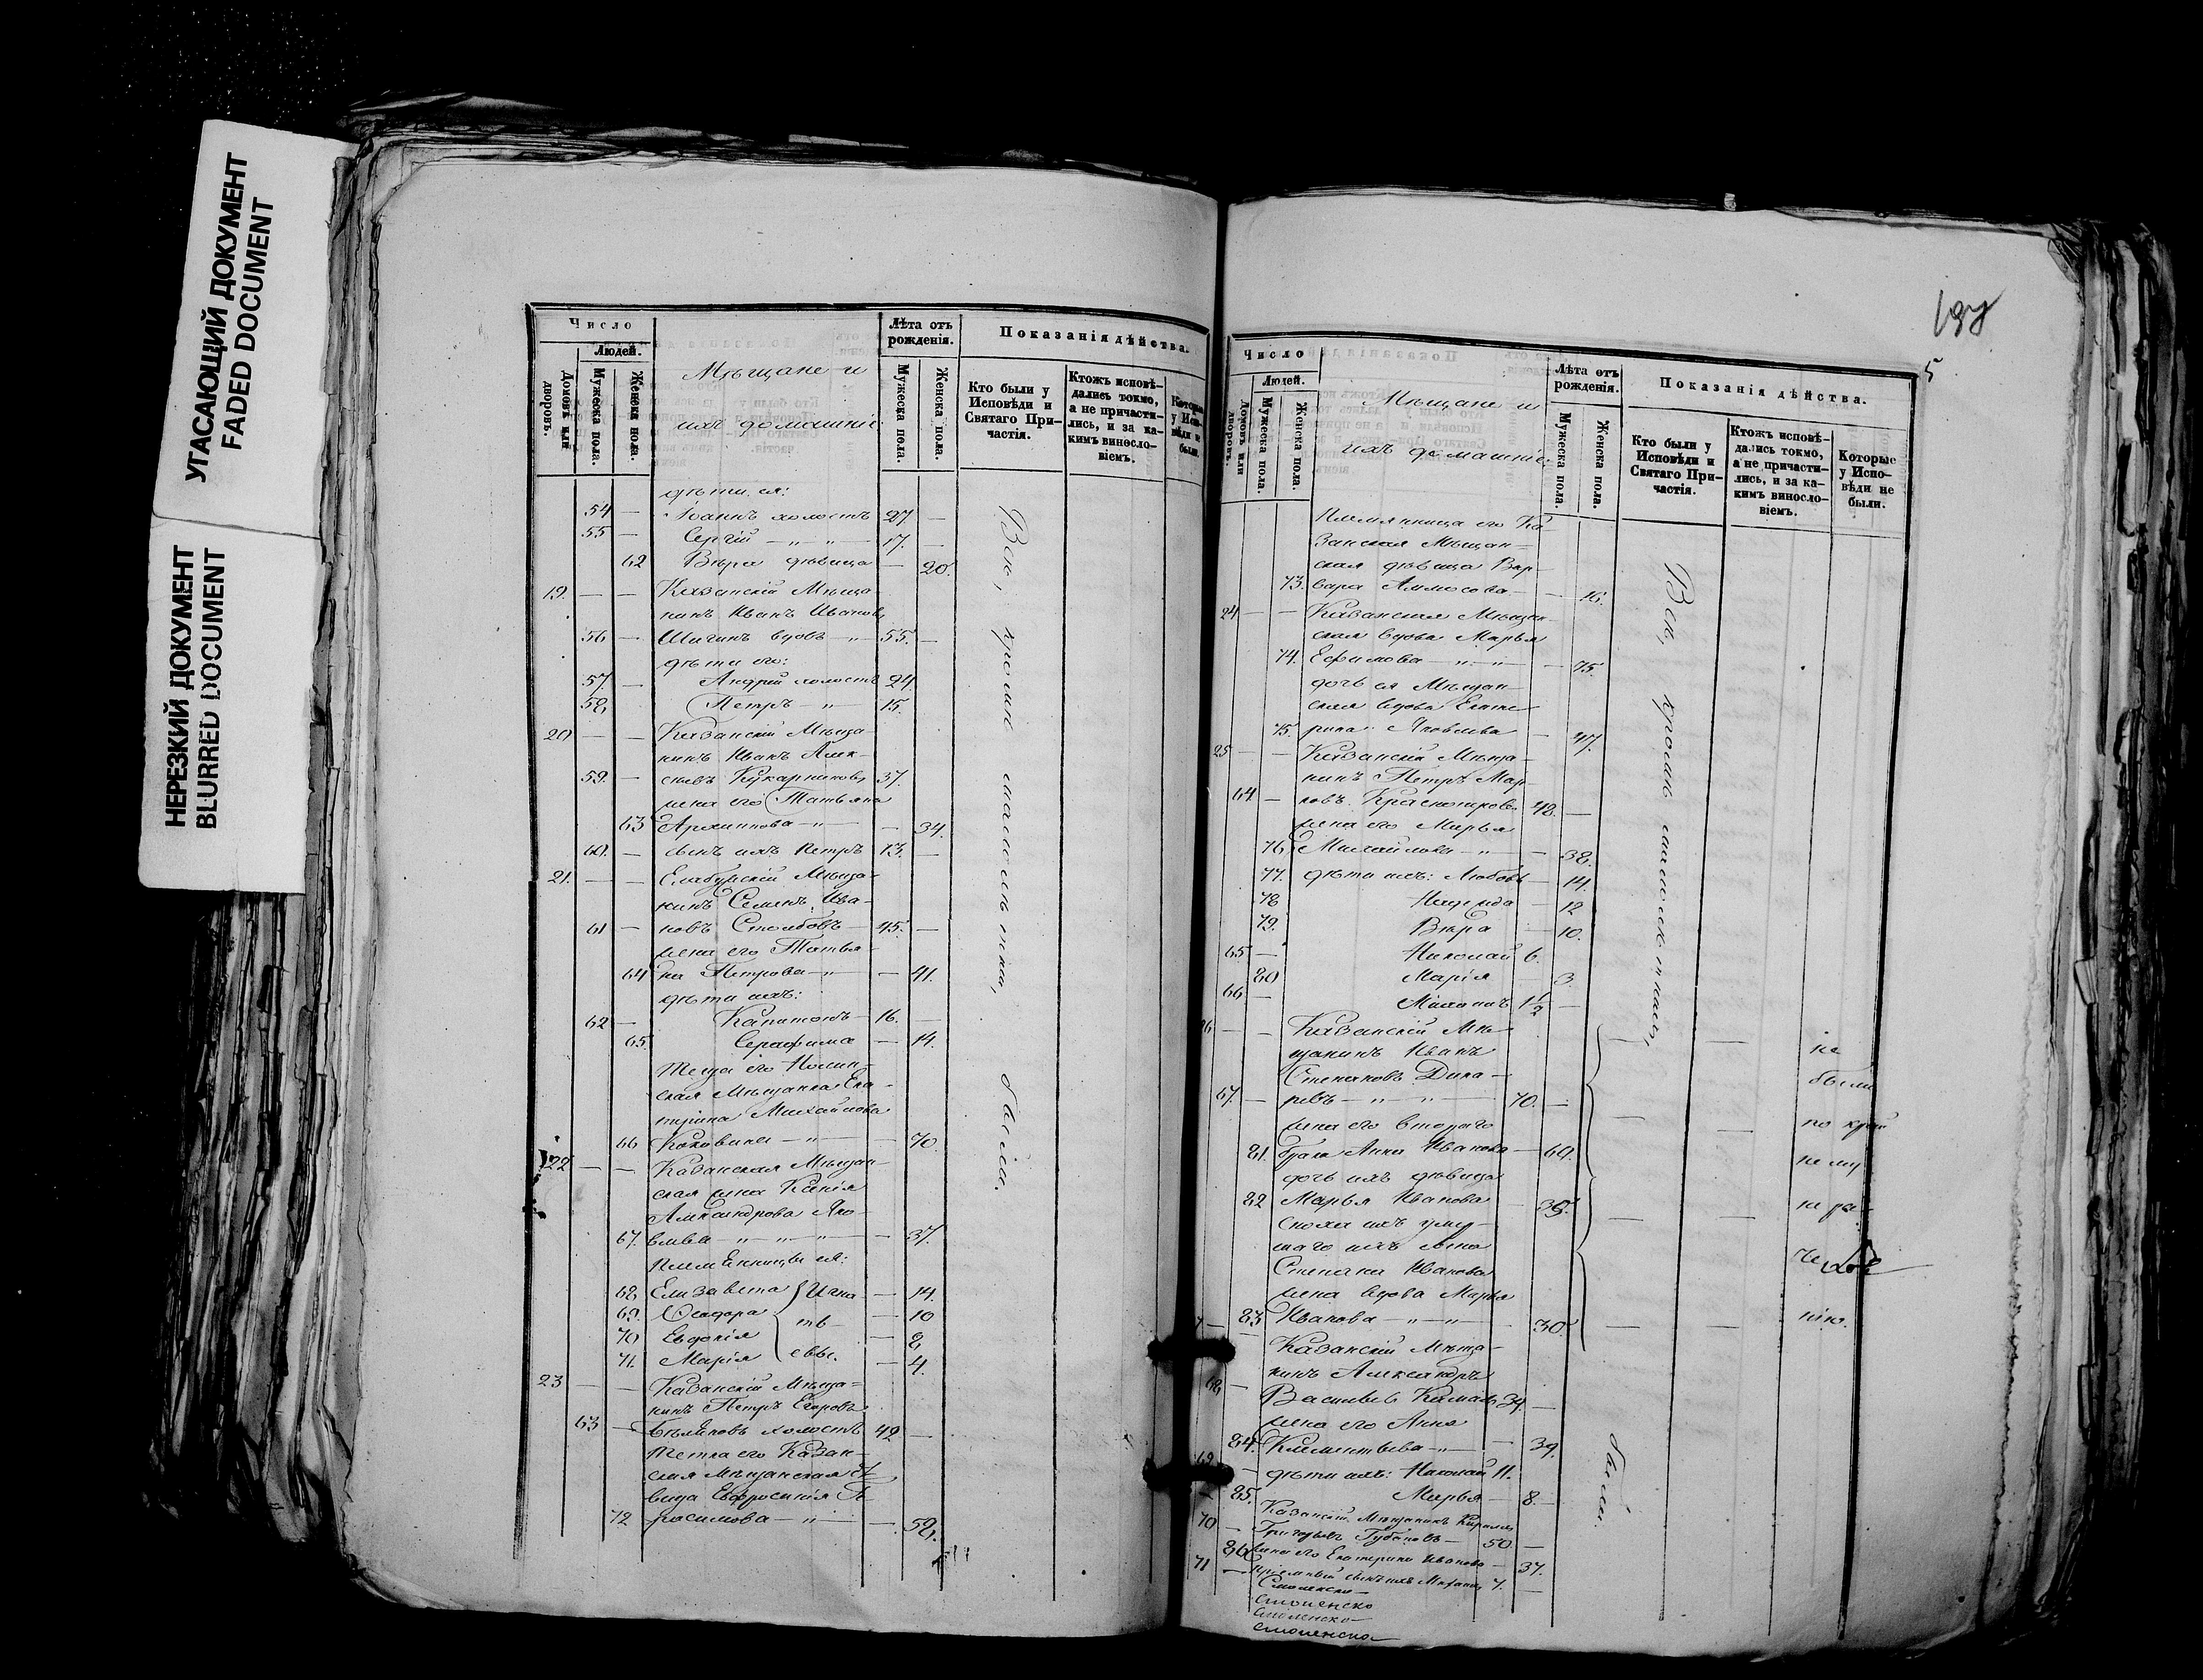 УГАСАЮЩИЙ ДОКУМЕНТ
FADED DOCUMENT
НЕРЕЗКИЙ ДОКУМЕНТ
BLURRED DOCUMENT
Число
Людей.
Домовъ или дворовъ.
Мужеска пола.
Женска пола.
Мѣщане и
ихъ домашніе
Лѣта отъ рожденія.
Мужеска пола.
Женска пола.
Показанія дѣйства.
Кто были у Исповѣди и Святаго Причастія.
Ктожъ исповѣдались токмо, а не причастились, и за какимъ винословіемъ.
Которые у Исповѣди не были.
дѣти ея:
54 — Іоаннъ холостъ 27 —
55 — Сергій — „ — „ — 17. —
62 Вѣра дѣвица — 20.
19. — — Казанскій Мѣща
нинъ Иванъ Ивановъ
56 — Шигинъ вдовъ — „ — 55. —
дѣти его:
57. — Андрей холостъ 24.
58 (Петръ — „ — 15.
20 — — Казанскій Мѣща
нинъ Иванъ Алек-
59. — сѣевъ Кукарниковъ 37.
жена его Татьяна
63 Архиппова — „ — — 34.
60. — сынъ ихъ Петръ 13. —
21. — — Елабужскій Мѣща-
нинъ Семенъ Ива-
61 — новъ Столбовъ — 45. —
жена его Татья-
64 на Петрова — „ — — 41.
дѣти ихъ:
62 — Капитонъ — 16. —
65. Серафима — 14.
теща его Нолин-
ская Мѣщанка Ека-
терина Михайлова
66 — „ — — 70.
22 — — Казанская Мѣщан-
ская жена
Александрова Яко-
67. влева — „ — „ — „ — — 37.
племянницы ея:
68 Елизавета — 14.
69. Ѳеодора — 10
70 Евдокія — 8
71. Марія — 4.
Игна
ть
евы.
23 — — Казанскій Мѣща-
нинъ Петръ Егоровъ
63 — Бѣляковъ холостъ 42 —
тетка его Казан-
ская Мѣщанская дѣ
вица Евфросинія Ге
72 расимова — „ — — 58.
Всѣ, кромѣ малолѣтнихъ, были.
197
5
Число
Людей.
Домовъ или дворовъ.
Мужеска пола.
Женска пола.
Мѣщане и
ихъ домашніе:
Лѣта отъ рожденія.
Мужеска пола.
Женска пола.
Показанія дѣйства.
Кто были у Исповѣди и Святаго Причастія.
Ктожъ исповѣдались токмо, а не причастились, и за какимъ винословіемъ.
Которые у Исповѣди не были.
племянница его Ка-
занская Мѣщан-
ская дѣвица Вар-
73. вара — 16.
24 — — Казанская Мѣщан-
ская вдова Марья
74. Ефимова — „ — „ — — 75.
дочь ея Мѣщан-
ская вдова Екате-
75. рина Яковлева — 47.
25 — — Казанскій Мѣща-
нинъ Петръ Мар
64 — ковъ 48. —
жена его Марья
76 Михайлова — „ — — 38.
77. дѣти ихъ: Любовь — 14.
78 Надежда — 12
79. Вѣра — 10.
65 — Николай 6.
80 Марія 3.
66 — Михаилъ 1½ —
26 — — Казанскій Мѣ-
щанинъ Иванъ
Степановъ Дика-
67. — ревъ — „ — „ — 70. —
жена его втораго
81. брака Анна Иванова — 60.
дочь ихъ дѣвица
82 Марья Иванова — 35.
сноха ихъ умер-
шаго ихъ сына
Степана Иванова
жена вдова Марья
83 Иванова — „ — „ — — 30.
— — не
были
по край
нему
нерa-
Казанскій Мѣща-
нинъ Александръ
68 — Васильевъ 39 —
жена его Анна
84. Климентьева — „ — — 39.
69 — дѣти ихъ: Николай 11.
85. Марья — 8 —
Казанскій Мѣщанинъ Кириллъ
70 — Григорьевъ Губановъ — 50 —
86 Жена его Екатерина Иванова — 37.
71 — пріемный сынъ ихъ Михаилъ 7. —
Смоленско-
Смоленско
Смоленско-
Смоленско-
Всѣ, кромѣ малолѣтнихъ, были.